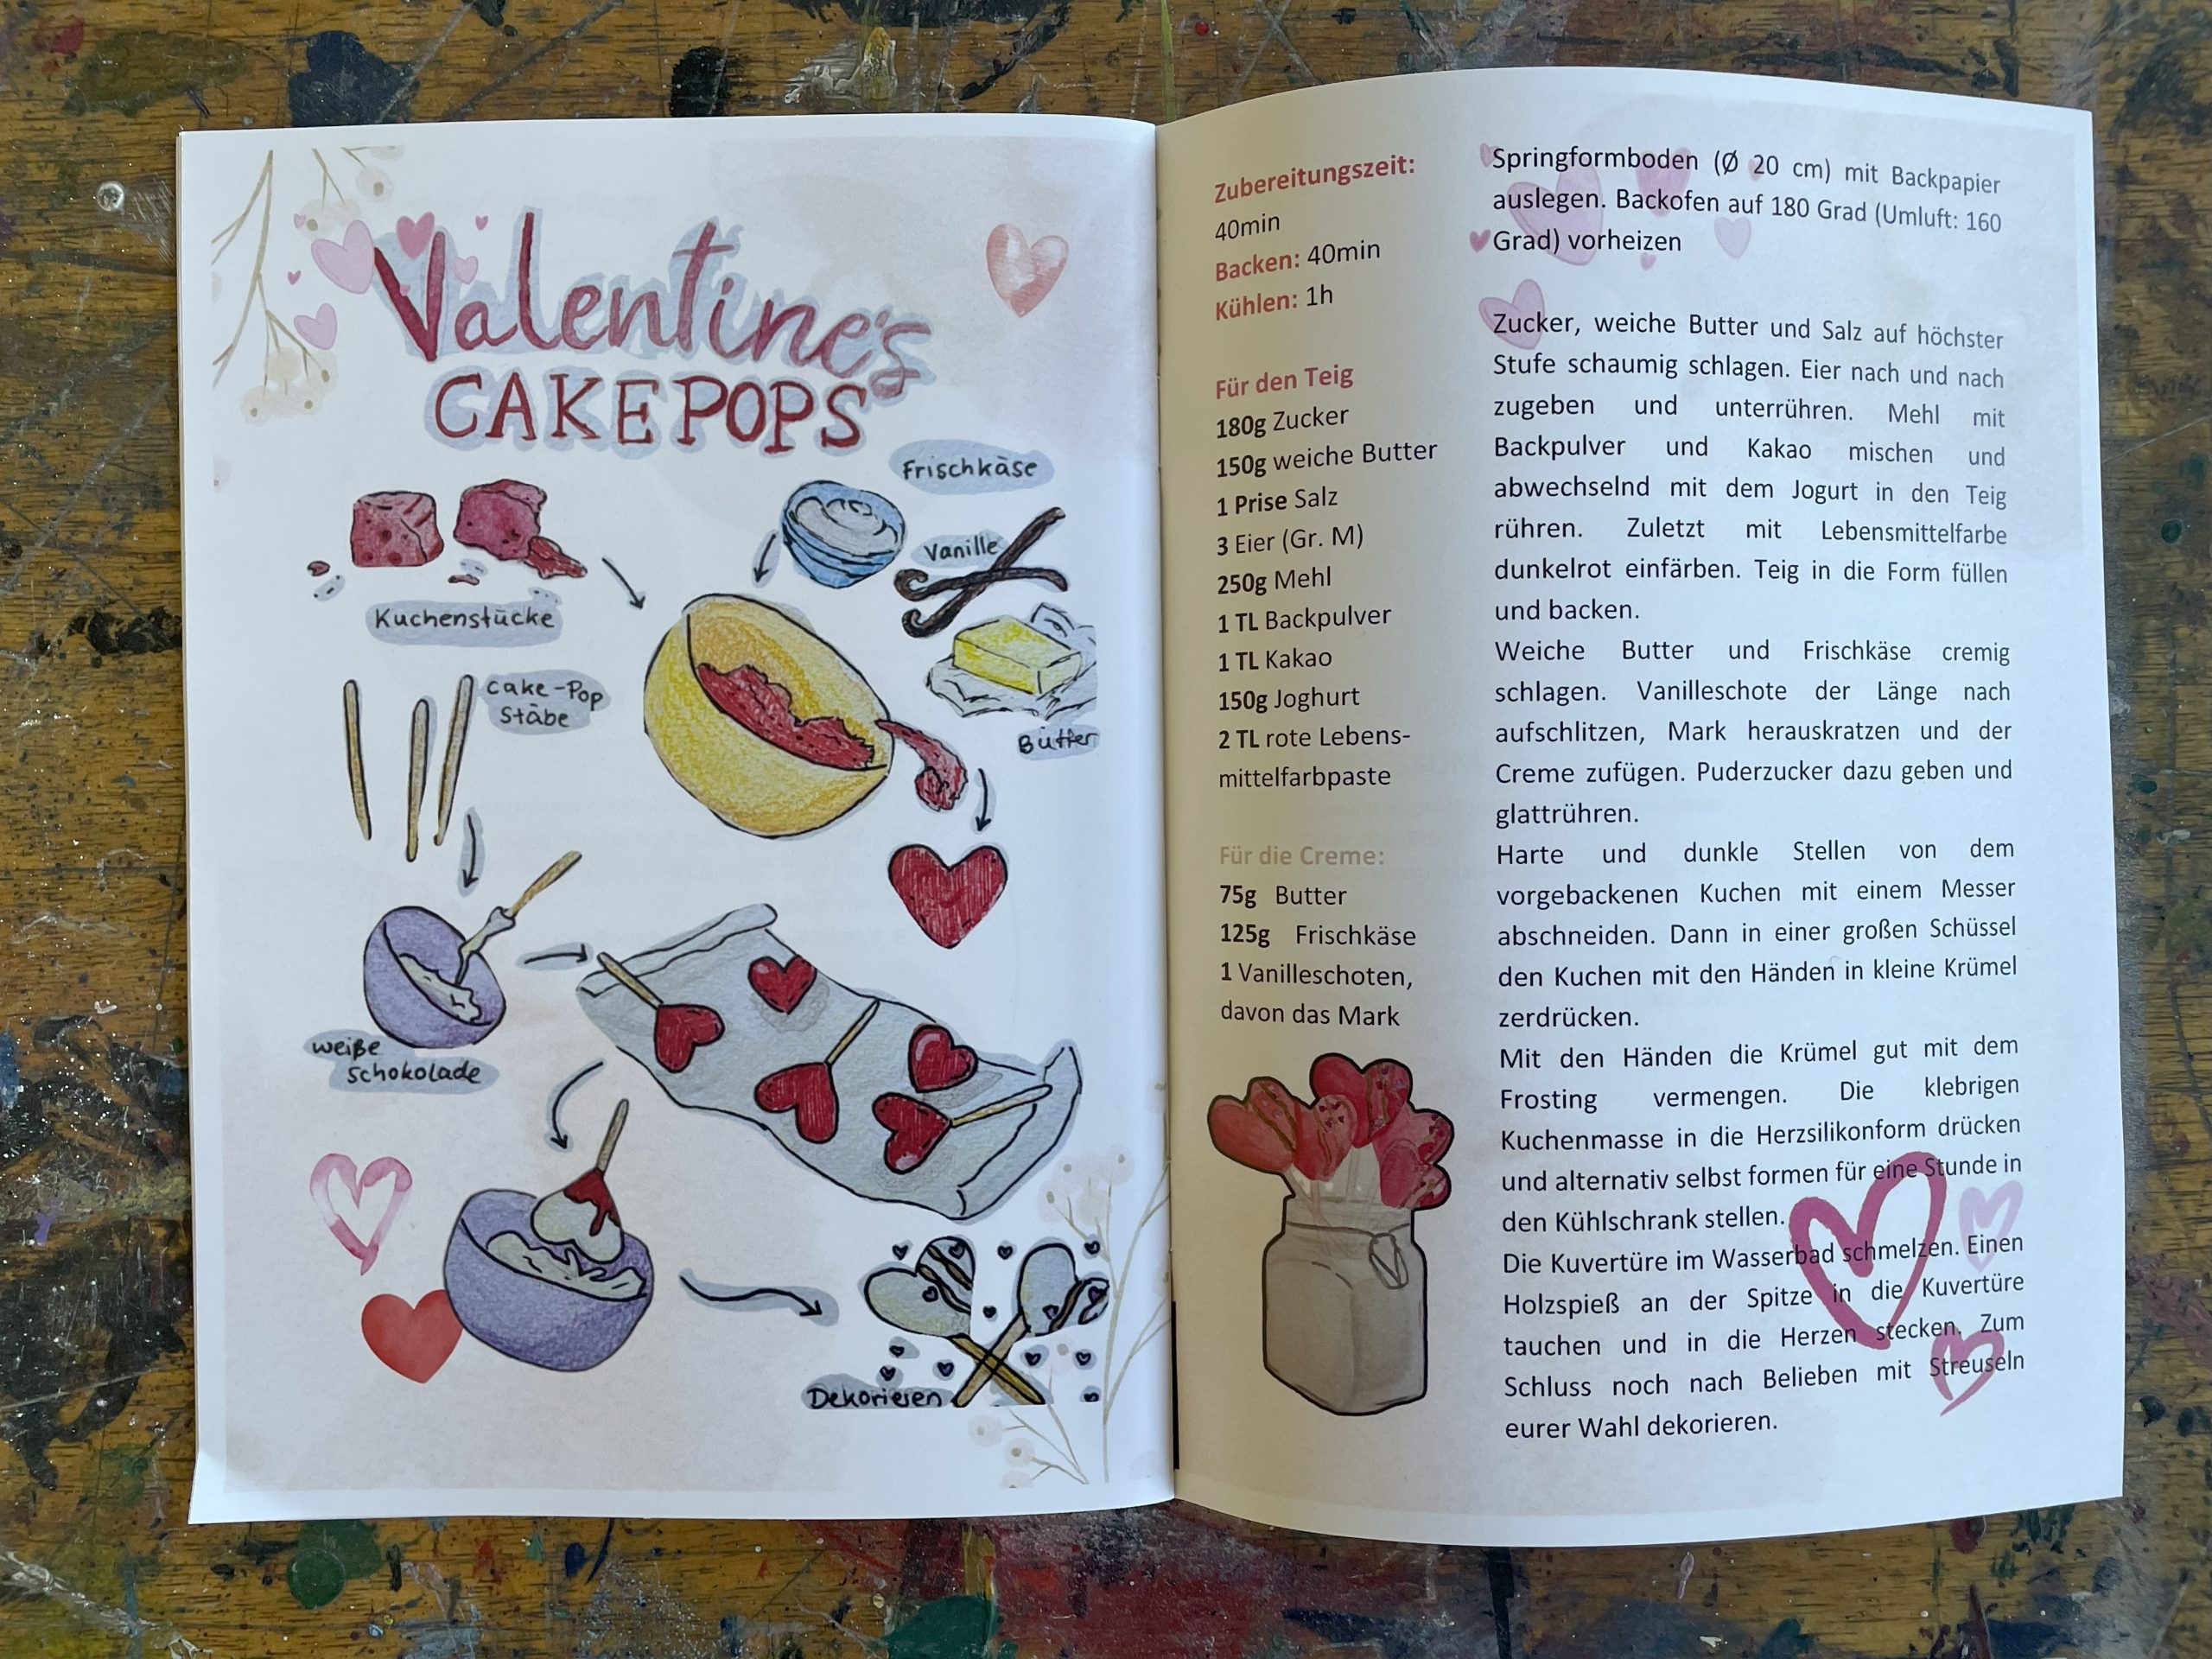 Valentine's
CAKEPOPS
Frischkäse
Vanille
Kuchenstücke
Cake-Pop
Stäbe
Butter
weiße
Schokolade
Dekorieren
Zubereitungszeit:
40min
Backen: 40min
Kühlen: 1h
Für den Teig
180g Zucker
150g weiche Butter
1 Prise Salz
3 Eier (Gr. M)
250g Mehl
1 TL Backpulver
1 TL Kakao
150g Joghurt
2 TL rote Lebens-
mittelfarbpaste
Für die Creme:
75g Butter
125g Frischkäse
1 Vanilleschoten,
davon das Mark
Springformboden (Ø 20 cm) mit Backpapier
auslegen. Backofen auf 180 Grad (Umluft: 160
Grad) vorheizen
Zucker, weiche Butter und Salz auf höchster
Stufe schaumig schlagen. Eier nach und nach
zugeben und unterrühren. Mehl mit
Backpulver und Kakao mischen und
abwechselnd mit dem Jogurt in den Teig
rühren. Zuletzt mit Lebensmittelfarbe
dunkelrot einfärben. Teig in die Form füllen
und backen.
Weiche Butter und Frischkäse cremig
schlagen. Vanilleschote der Länge nach
aufschlitzen, Mark herauskratzen und der
Creme zufügen. Puderzucker dazu geben und
glattrühren.
Harte und dunkle Stellen von dem
vorgebackenen Kuchen mit einem Messer
abschneiden. Dann in einer großen Schüssel
den Kuchen mit den Händen in kleine Krümel
zerdrücken.
Mit den Händen die Krümel gut mit dem
Frosting vermengen. Die klebrigen
Kuchenmasse in die Herzsilikonform drücken
und alternativ selbst formen für eine Stunde in
den Kühlschrank stellen.
Die Kuvertüre im Wasserbad schmelzen. Einen
Holzspieß an der Spitze in die Kuvertüre
tauchen und in die Herzen stecken. Zum
Schluss noch nach Belieben mit Streuseln
eurer Wahl dekorieren.